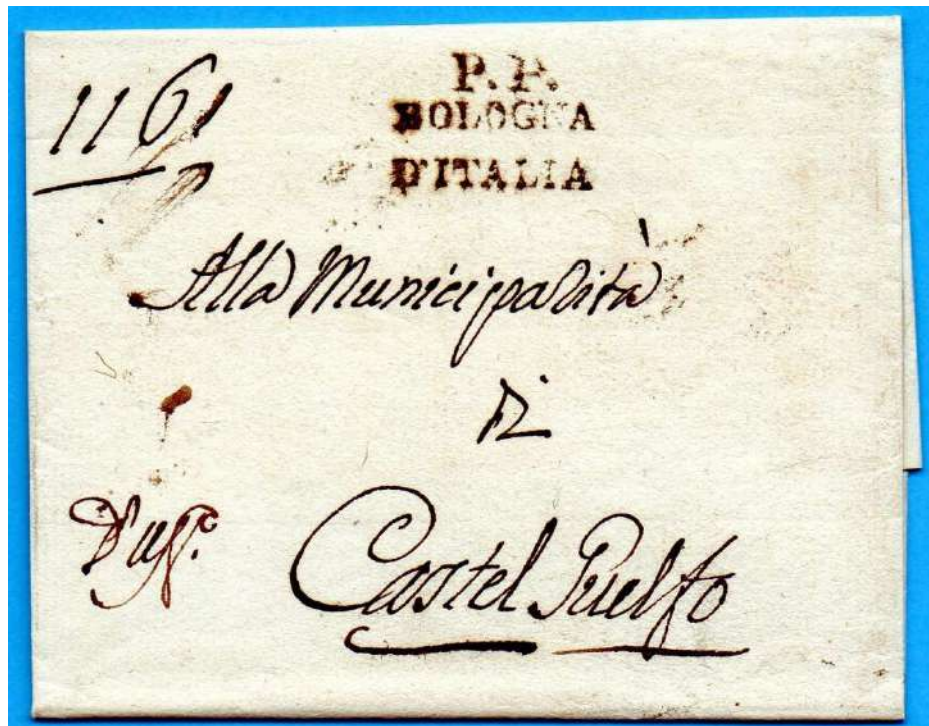 1161
P. P.
BOLOGNA
D'ITALIA
Alla Municipalità
Di
Castel Guelfo
D'uff.°